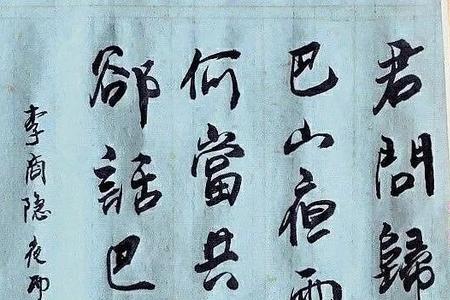 君問歸
巴山夜雨
何當共
卻話巴
李商隐夜雨